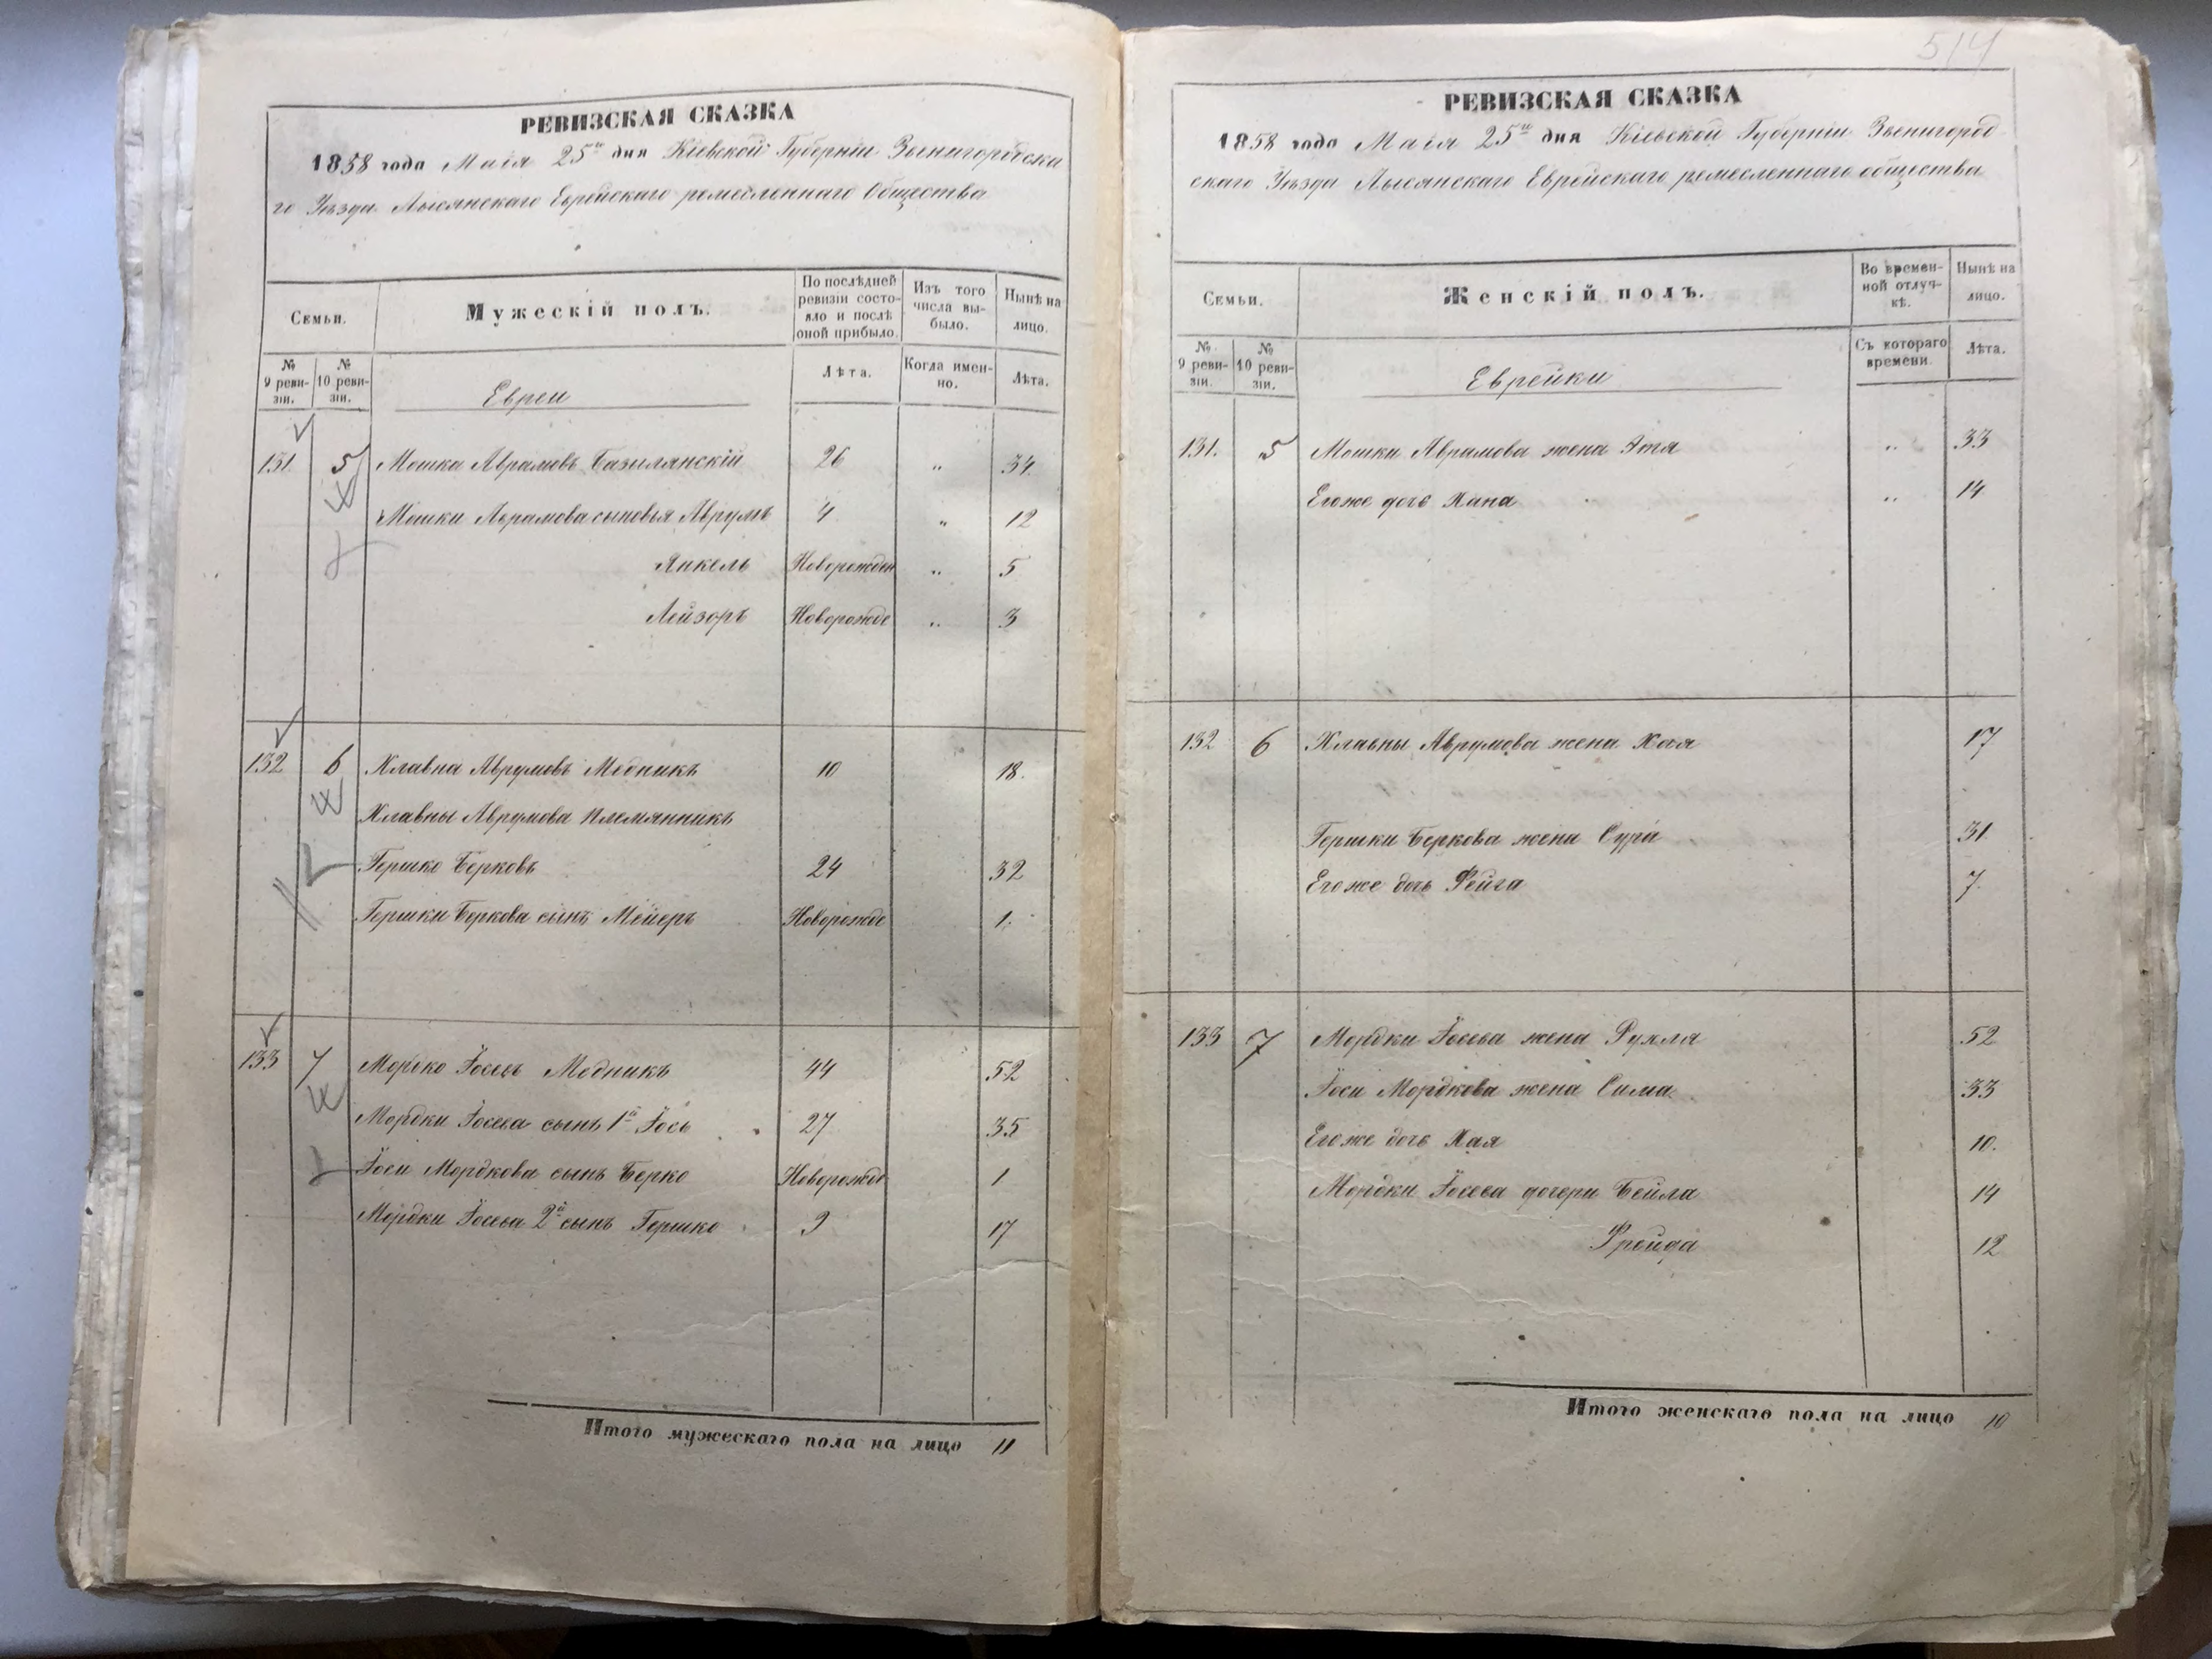 РЕВИЗСКАЯ СКАЗКА
1858 года Маія 25го дня Кіевской Губерніи Звенигородска
го Уѣзда Лысянскаго Еврейскаго ремесленнаго Общества
Семьи.
Мужескій полъ.
По послѣдней
ревизіи состо-
яло и послѣ
оной прибыло.
Изъ того
числа вы-
было.
Нынѣ на
лицо.
№
9 реви-
зіи.
№
10 реви-
зіи.
Евреи
Лѣта.
Когда имен-
но.
Лѣта.
131 5 Мошко Аврамовъ Базилянскій 26 „ 34
Мошки Аврамова сыновья Аврумъ 4 „ 12
Янкель Новорожден „ 5
Лейзоръ Новорожде „ 3
132 6 Клавна Аврумовъ Медникъ 10 18.
Клавны Аврумова племянникъ
Гершко Берковъ 24 32
Гершки Беркова сынъ Мейеръ Новорожде 1.
133 7 Мордко Іосевъ Медникъ 44 52
Мордки Іосева сынъ 1й Іось 27 35
Іоси Мордкова сынъ Берко Новорожде 1
Мордки Іосева 2й сынъ Гершко 9 17
Итого мужескаго пола на лицо 11
514
РЕВИЗСКАЯ СКАЗКА
1858 года Маія 25го дня Кіевской Губерніи Звенигород
скаго Уѣзда Лысянскаго Еврейскаго ремесленнаго общества
Семьи.
Женскій полъ.
Во времен-
ной отлуч-
кѣ.
Нынѣ на
лицо.
№
9 реви-
зіи.
№
10 реви-
зіи.
Еврейки
Съ котораго
времени.
Лѣта.
131. 5 Мошки Аврамова жена Этя „ 33
Егоже дочь Хана „ 14
132 6 Клавны Аврумова жена Хая 17
Гершки Беркова жена Сура 31
Егоже дочь Фейга 7.
133 7 Мордки Іосева жена Рухля 52
Іоси Мордкова жена Сима 33
Егоже дочь Хая 10.
Мордки Іосева дочери Бейла 14
Фрейда 12
Итого женскаго пола на лицо 10